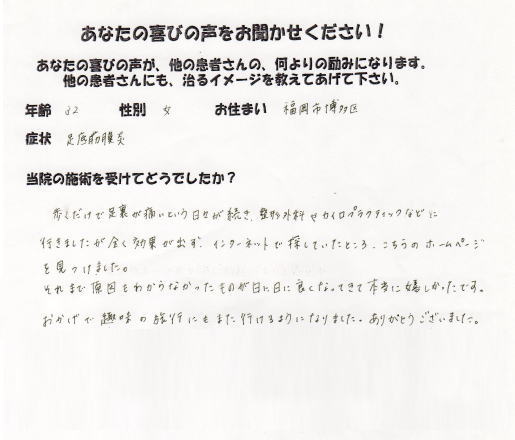 あなたの喜びの声をお聞かせください！
あなたの喜びの声が、他の患者さんの、何よりの励みになります。
他の患者さんにも、治るイメージを教えてあげて下さい。
年齢 32 性別 女 お住まい 福岡市博多区
症状 足底筋膜炎
当院の施術を受けてどうでしたか？
歩くだけで足裏が痛いという日々が続き、整形外科やカイロプラクティックなどに
行きましたが全く効果が出ず、インターネットで探していたところ、こちらのホームページ
を見つけました。
それまで原因もわからなかったものが日に日に良くなってきて本当に嬉しかったです。
おかげで趣味の旅行にもまた行けるようになりました。ありがとうございました。